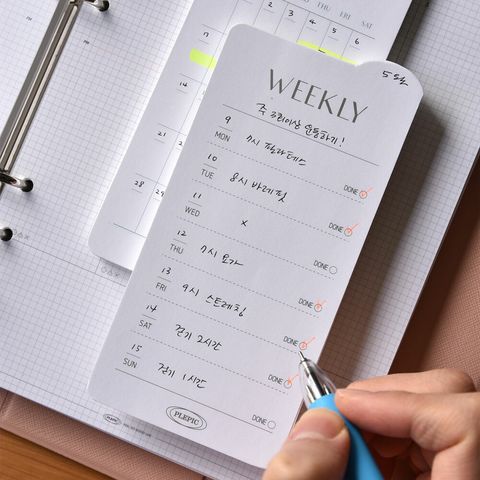 THU FRI SAT
2 3 4 5 6
PM
17
14
21
28 29
PM
5월
WEEKLY
주 3회이상 운동하기!
9 MON 7시 필라테스 DONE
10 TUE 8시 바레핏 DONE
11 WED x
12 THU 7시 요가 DONE
13 FRI 9시 스트레칭 DONE
14 SAT 걷기 2시간 DONE
15 SUN 걷기 1시간 DONE
PLEPIC
PLEPIC